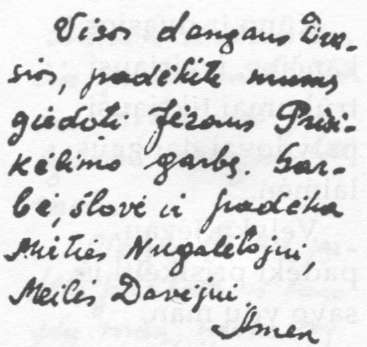 Visos dangaus Dva-
sios, padėkite mums
giedoti Jėzaus Prisi-
kėlimo garbę. Gar-
bė, šlovė ir padėka
Mirties Nugalėtojui,
Meilės Davėjui.
Amen